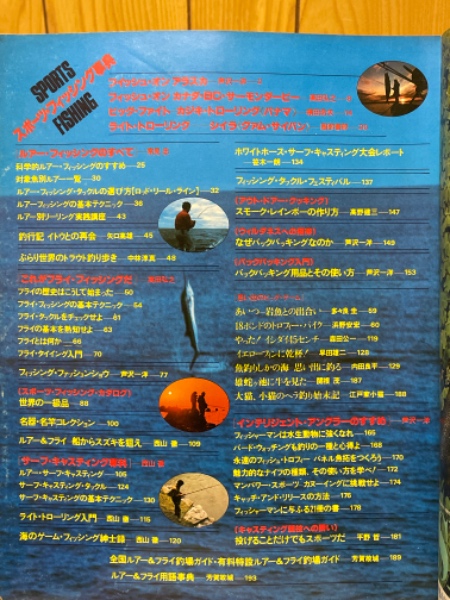 SPORTS
スポーツ・フィッシング専科
FISHING
フィッシュ・オン アラスカ
ビッグ・ファイト カジキ・トローリング・パナマ
ライト・トローリング
ルアー・フィッシングのすべて
科学的ルアー・フィッシングのすすめ—25
対象魚別ルアー一覧—30
ルアー・フィッシング・タックルの選び方【ロッド・リール・ライン】—32
ルアーフィッシングの基本テクニック—36
ルアー別リーリング実践講座—43
釣行記 イトウとの再会 矢口高雄—45
ぶらり世界のトラウト釣り歩き 中林淳真—48
これがフライ・フィッシングだ
フライの歴史はこうして始まった—50
フライ・フィッシングの基本テクニック—54
フライ・タックルをチェックせよ—61
フライの基本を熟知せよ—63
フライとは何か—66
フライ・タイイング入門—70
フィッシング・ファッションショウ 芦沢一洋—77
〈スポーツ・フィッシング・カタログ〉
世界の一級品—88
名器・名竿コレクション—100
ルアー＆フライ 船からスズキを狙え 西山徹—109
サーフ・キャスティング専科 西山徹
ルアー・サーフ・キャスティング—106
サーフ・キャスティング・タックル—124
サーフ・キャスティングの基本テクニック—130
ライト・トローリング入門 西山徹—115
海のゲーム・フィッシング紳士録 西山徹—120
ホワイトホース・サーフ・キャスティング大会レポート
若木一朗—134
フィッシング・タックル・フェスティバル—137
〈アウト・ドアー・クッキング〉
スモーク・レインボーの作り方 高野建三—147
〈ウィルダネスへの招待〉
なぜバックパッキングなのか 芦沢一洋—149
〈バックパッキング入門〉
バックパッキング用品とその使い方 芦沢一洋—153
あいつ—岩魚との出合い 多々良圭—59
18ポンドのトロフィー・パイク 浜野安宏—60
やった！イシダイ4.5センチ 森田公一—119
イエローフィンに乾杯！ 早田雄二—128
魚釣りしかの海 思い出に釣る 内田良平—129
雄蛇ヶ池に牛を見た 関根茂—187
大猫、小猫のヘラ釣り始末記 江戸家小猫—188
インテリジェント・アングラーのすすめ 芦沢一洋
フィッシャーマンは水生動物に強くなれ—165
バード・ウォッチングも釣りの一種と心得よ—168
永遠のフィッシュ・トロフィー パネル魚拓をつくろう—170
魅力的なナイフの種類、その使い方を学べ！—172
マンパワー・スポーツ カヌーイングに挑戦せよ—174
キャッチ・アンド・リリースの方法—176
フィッシャーマンに与ふる21冊の書—178
投げることだけでもスポーツだ 平野哲—181
全国ルアー＆フライ釣場ガイド・有料特設ルアー＆フライ釣場ガイド 芳賀故城—189
ルアー＆フライ用語事典 芳賀故城—193